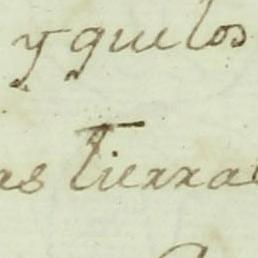 y que los
as tierra